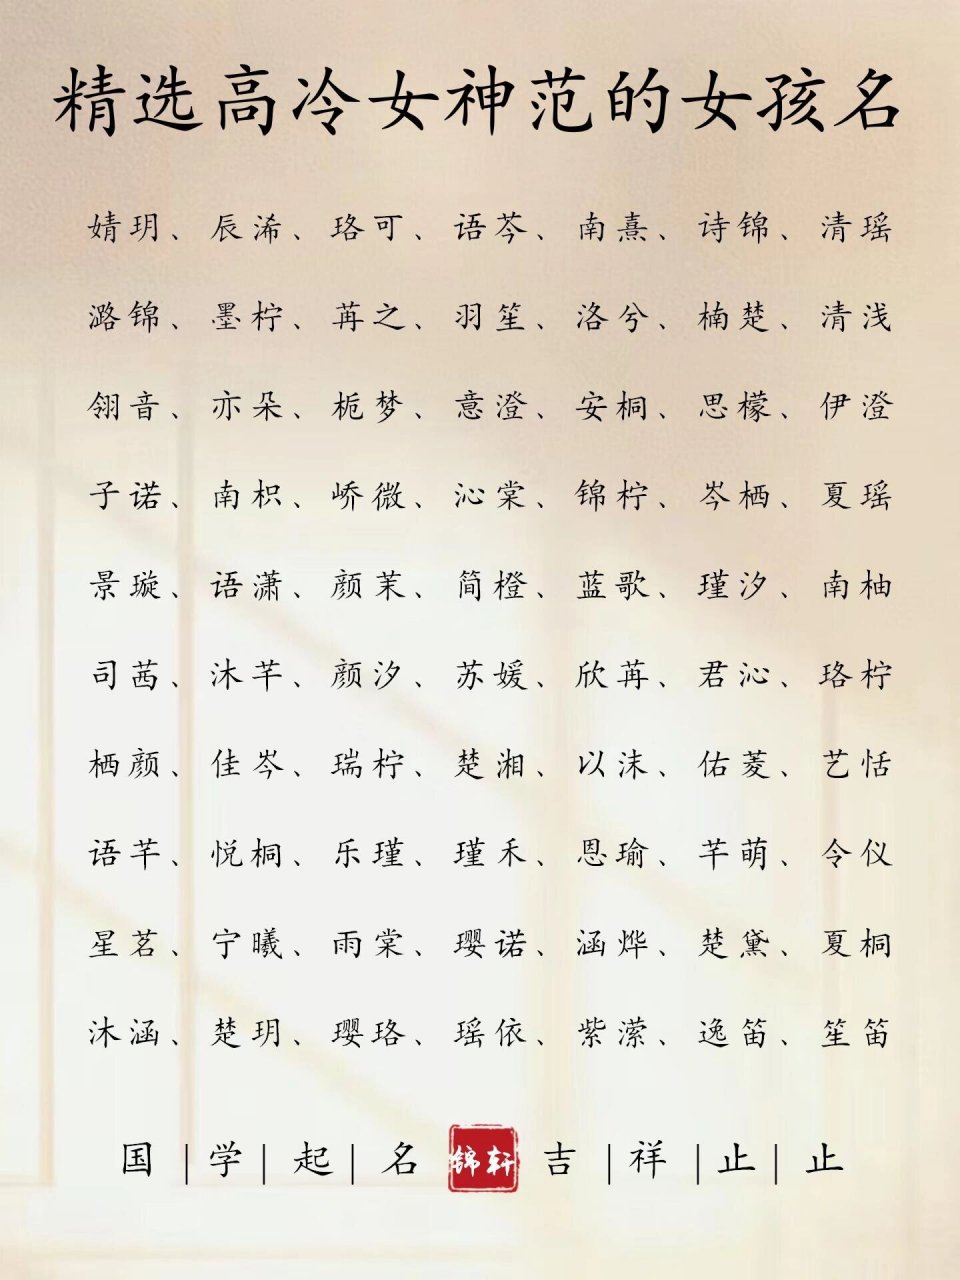 精选高冷女神范的女孩名
婧玥、辰浠、珞可、语芩、南熹、诗锦、清瑶
潞锦、墨柠、苒之、羽笙、洛兮、楠楚、清浅
翎音、亦朵、栀梦、意澄、安桐、思檬、伊澄
子诺、南枳、峤微、沁棠、锦柠、岑栖、夏瑶
景璇、语潇、颜茉、简橙、蓝歌、瑾汐、南柚
司茜、沐芊、颜汐、苏媛、欣苒、君沁、珞柠
栖颜、佳岑、瑞柠、楚湘、以沫、佑菱、艺恬
语芊、悦桐、乐瑾、瑾禾、恩瑜、芊萌、令仪
星茗、宁曦、雨棠、璎诺、涵烨、楚黛、夏桐
沐涵、楚玥、璎珞、瑶依、紫潆、逸笛、笙笛
国|学|起|名 锦轩 吉|祥|止|止